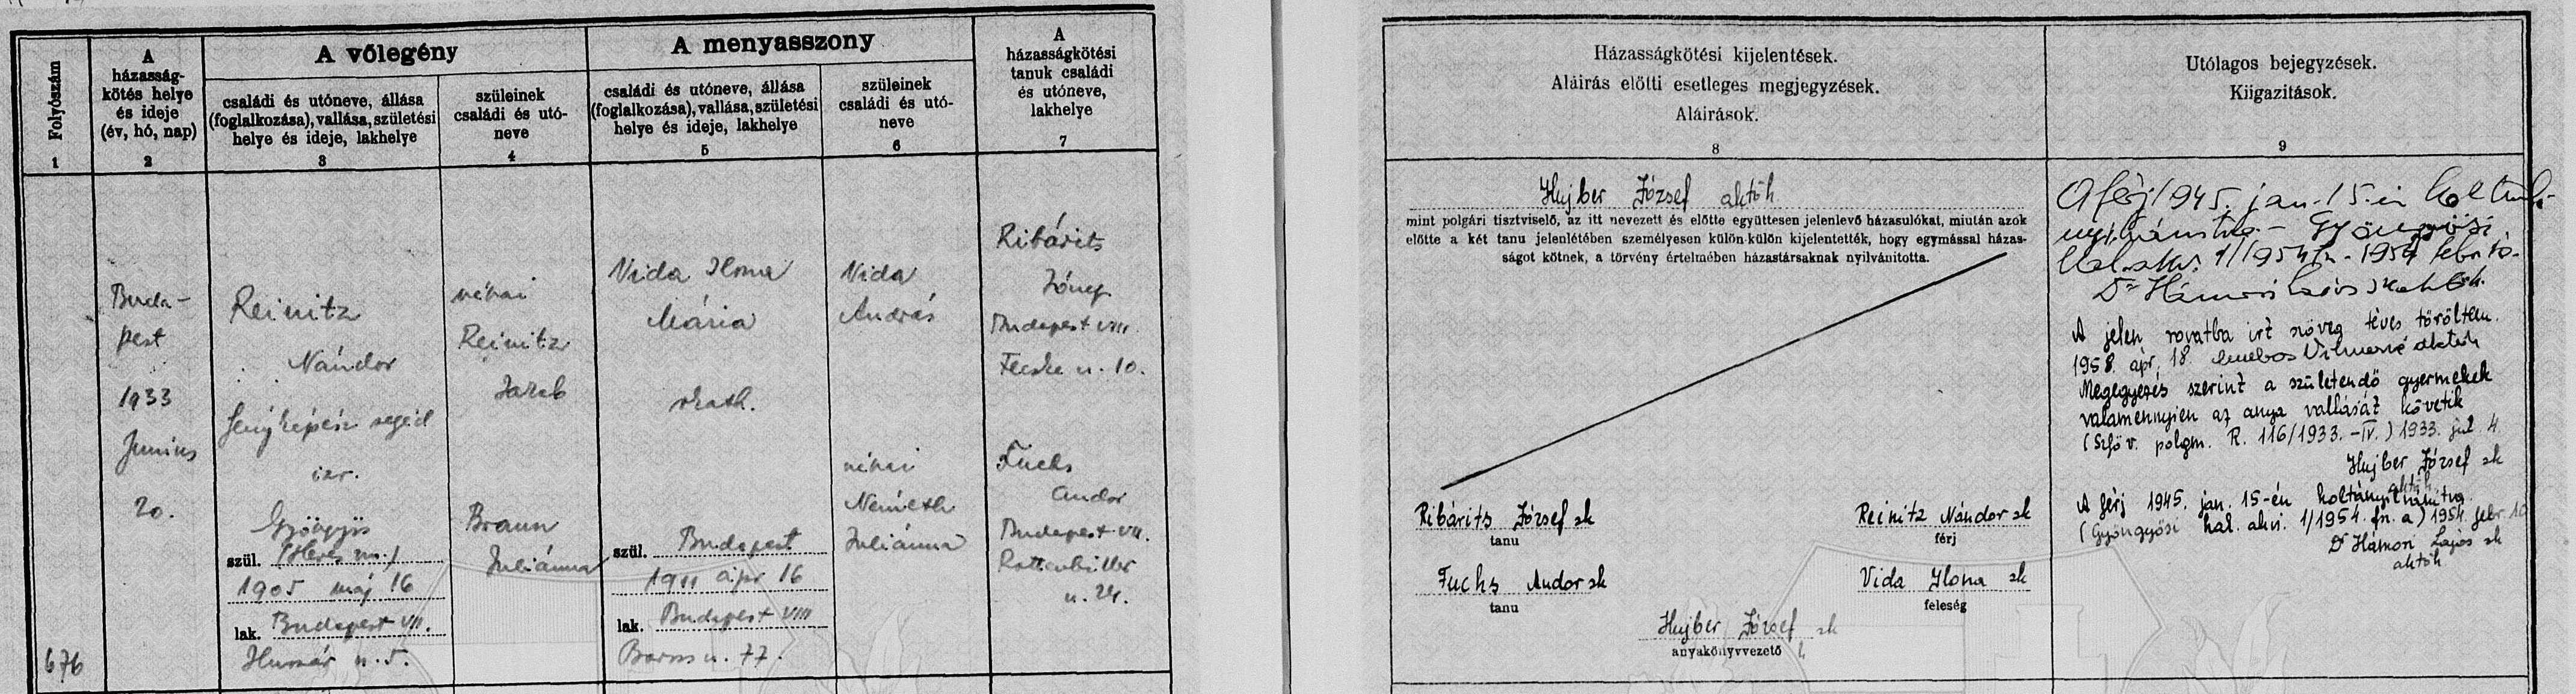 Folyószám
1
A
házasság-
kötés helye
és ideje
(év, hó, nap)
2
A vőlegény
családi és utóneve, állása
(foglalkozása), vallása, születési
helye és ideje, lakhelye
3
szüleinek
családi és utó-
neve
4
A menyasszony
családi és utóneve, állása
(foglalkozása), vallása, születési
helye és ideje, lakhelye
5
szüleinek
családi és utó-
neve
6
A
házasságkötési
tanuk családi
és utóneve,
lakhelye
7
Házasságkötési kijelentések.
Aláirás előtti esetleges megjegyzések.
Aláirások.
8
Utólagos bejegyzések.
Kiigazitások.
9
676
Buda-
pest
1933
Junius
20.
Reinitz
Nándor
fényképész segéd
izr.
Gyöngyös
szül. (Heves m.)
1905 máj 16
lak. Budapest VII.
Huszár u. 5.
néhai
Reinitz
Jakab
Braun
Juliánna
Vida Ilona
Mária
rkath.
szül. Budapest
1911 ápr 16
lak. Budapest VIII
Baross u. 77.
Vida
András
néhai
Németh
Juliánna
Ribárits
József
Budapest VIII.
Fecske u. 10.
Fuchs
Andor
Budapest VII.
Rottenbiller
u. 24.
Hujber József aktöh
mint polgári tisztviselő, az itt nevezett és előtte együttesen jelenlevő házasulókat, miután azok
előtte a két tanu jelenlétében személyesen külön-külön kijelentették, hogy egymással házas-
ságot kötnek, a törvény értelmében házastársaknak nyilvánitotta.
Ribárits József sk
tanu
Reinitz Nándor sk
férj
Fuchs Andor sk
tanu
Vida Ilona sk
feleség
Hujber József sk
anyakönyvvezető
A férj 1945. jan. 15-én holtnak
nyilvánitva - Gyöngyösi
hal. akv. 1/1954 fn. - 1954 febr 10.
Dr Hámori Lajos sk aktöh.
A jelen rovatba irt szöveg téves töröltem.
1958. ápr. 18. Vilmosné aktöh
Megegyezés szerint a születendő gyermekek
valamennyien az anya vallását követik
(Szfőv. polgm. R. 116/1933.-IV.) 1933. jul 4.
Hujber József sk
aktöh
A férj 1945. jan. 15-én holtányilvánitva
(Gyöngyösi hal. akvi. 1/1954. fn. a) 1954. febr. 10
Dr Hámori Lajos sk
aktöh